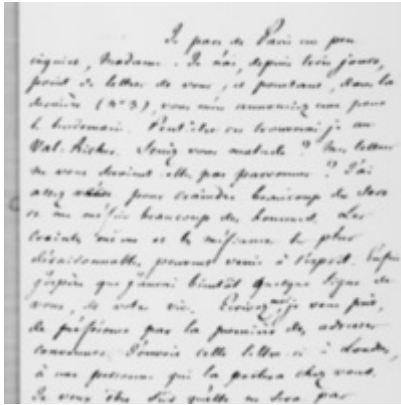 Je pars de Paris un peu
inquiet, Madame. Je n'ai, depuis trois jours,
point de lettre de vous, et pourtant, dans la
dernière (n°3), vous m'en annonciez une pour
le lendemain. Peut-être en trouverai-je au
Val-Richer. Seriez vous malade ? Mes lettres
ne vous seraient elles pas parvenues ? J'ai
assez pour craindre beaucoup du sort
et me méfier beaucoup des hommes. Les
craintes et la méfiance les plus
déraisonnables peuvent venir à l'esprit. Enfin
j'espère que j'aurai bientôt quelque signe de
vous, de votre vie. Ecrivez moi, je vous prie,
de préférence par la première des adresses
convenues. J'envoie cette lettre-ci à Londres,
à une personne qui la portera chez vous.
Je veux être sûr qu'elle ne sera pas